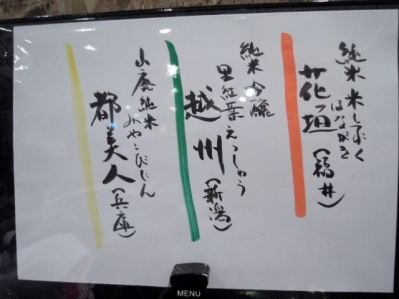 純米 米しずく
はながき
花垣(福井)
純米吟醸
里紅葉 えっしゅう
越州(新潟)
山廃純米
みやこびじん
都美人(兵庫)
MENU